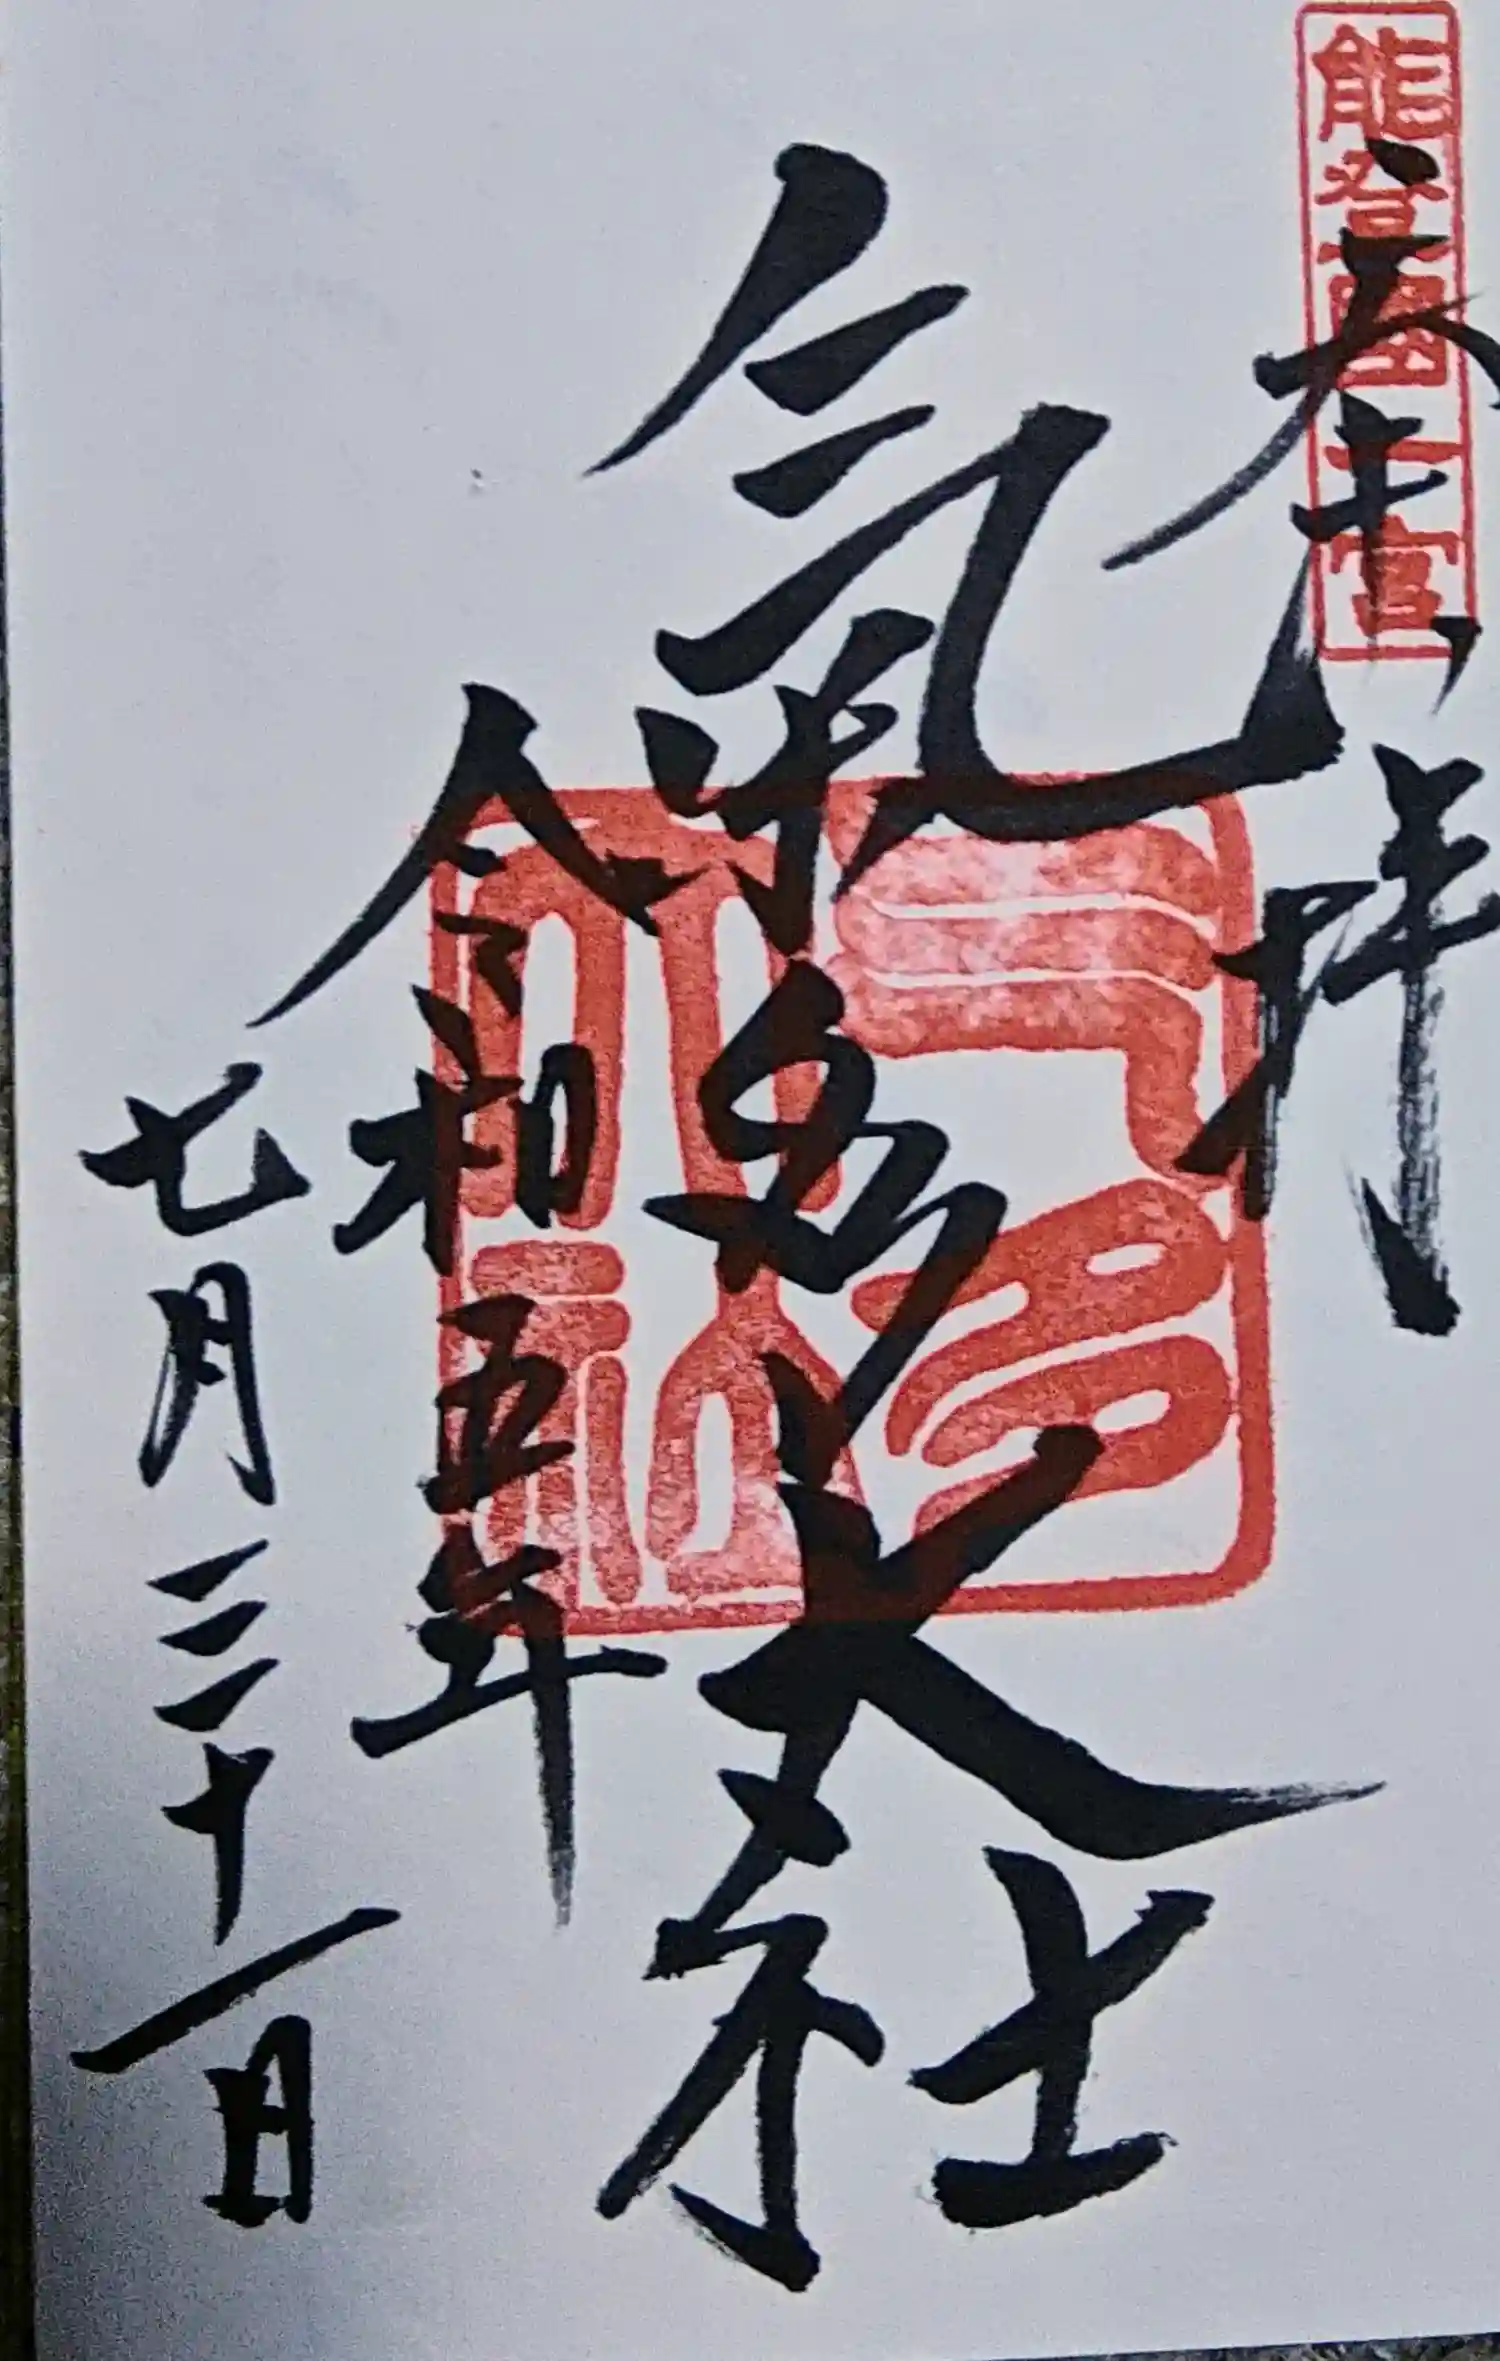 能登國一宮
奉拝
氣多大社
氣多大社
令和五年
七月三十一日